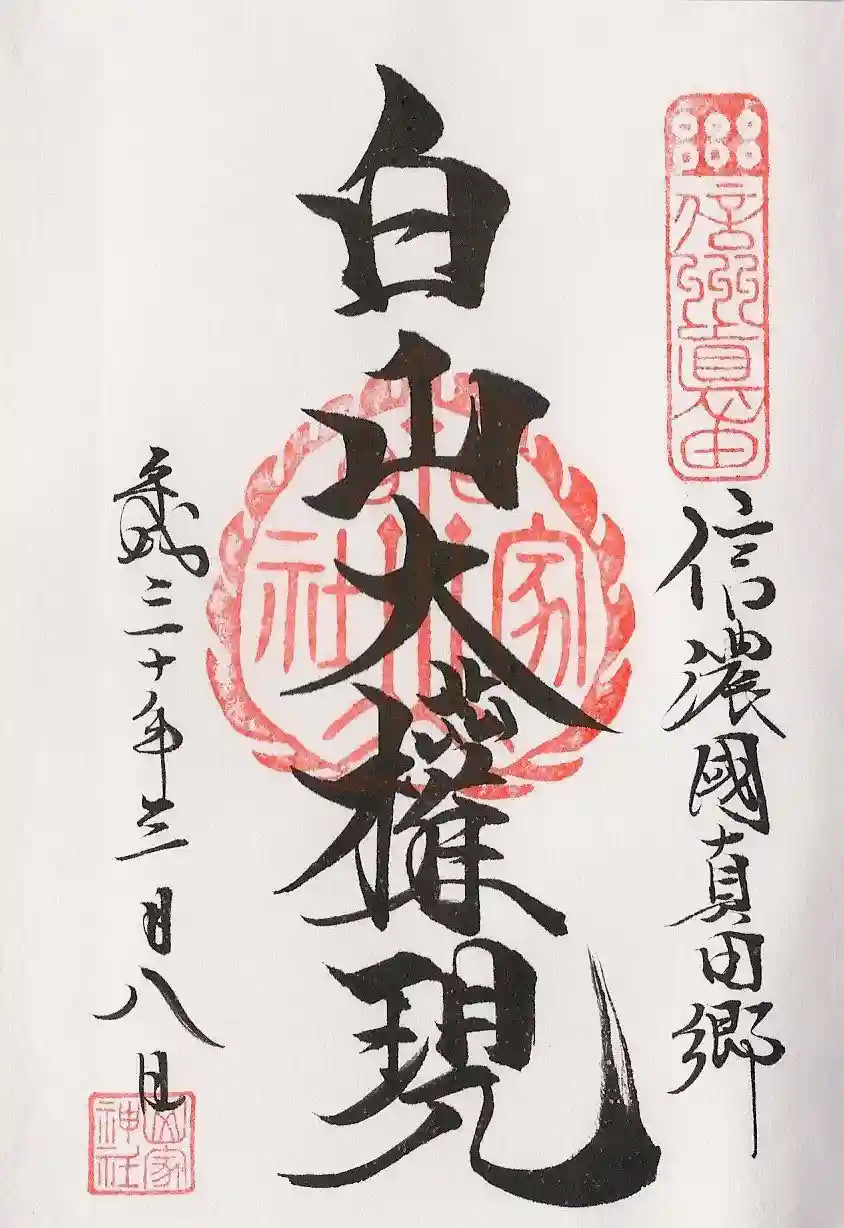 信州眞田
信濃國真田郷
白山大權現
家
社
平成三十年三月八日
山家
神社